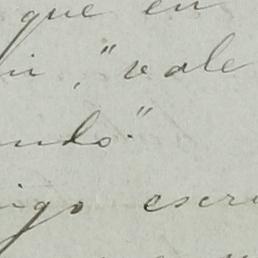 que en
ni, "vale
undo."
igo escri